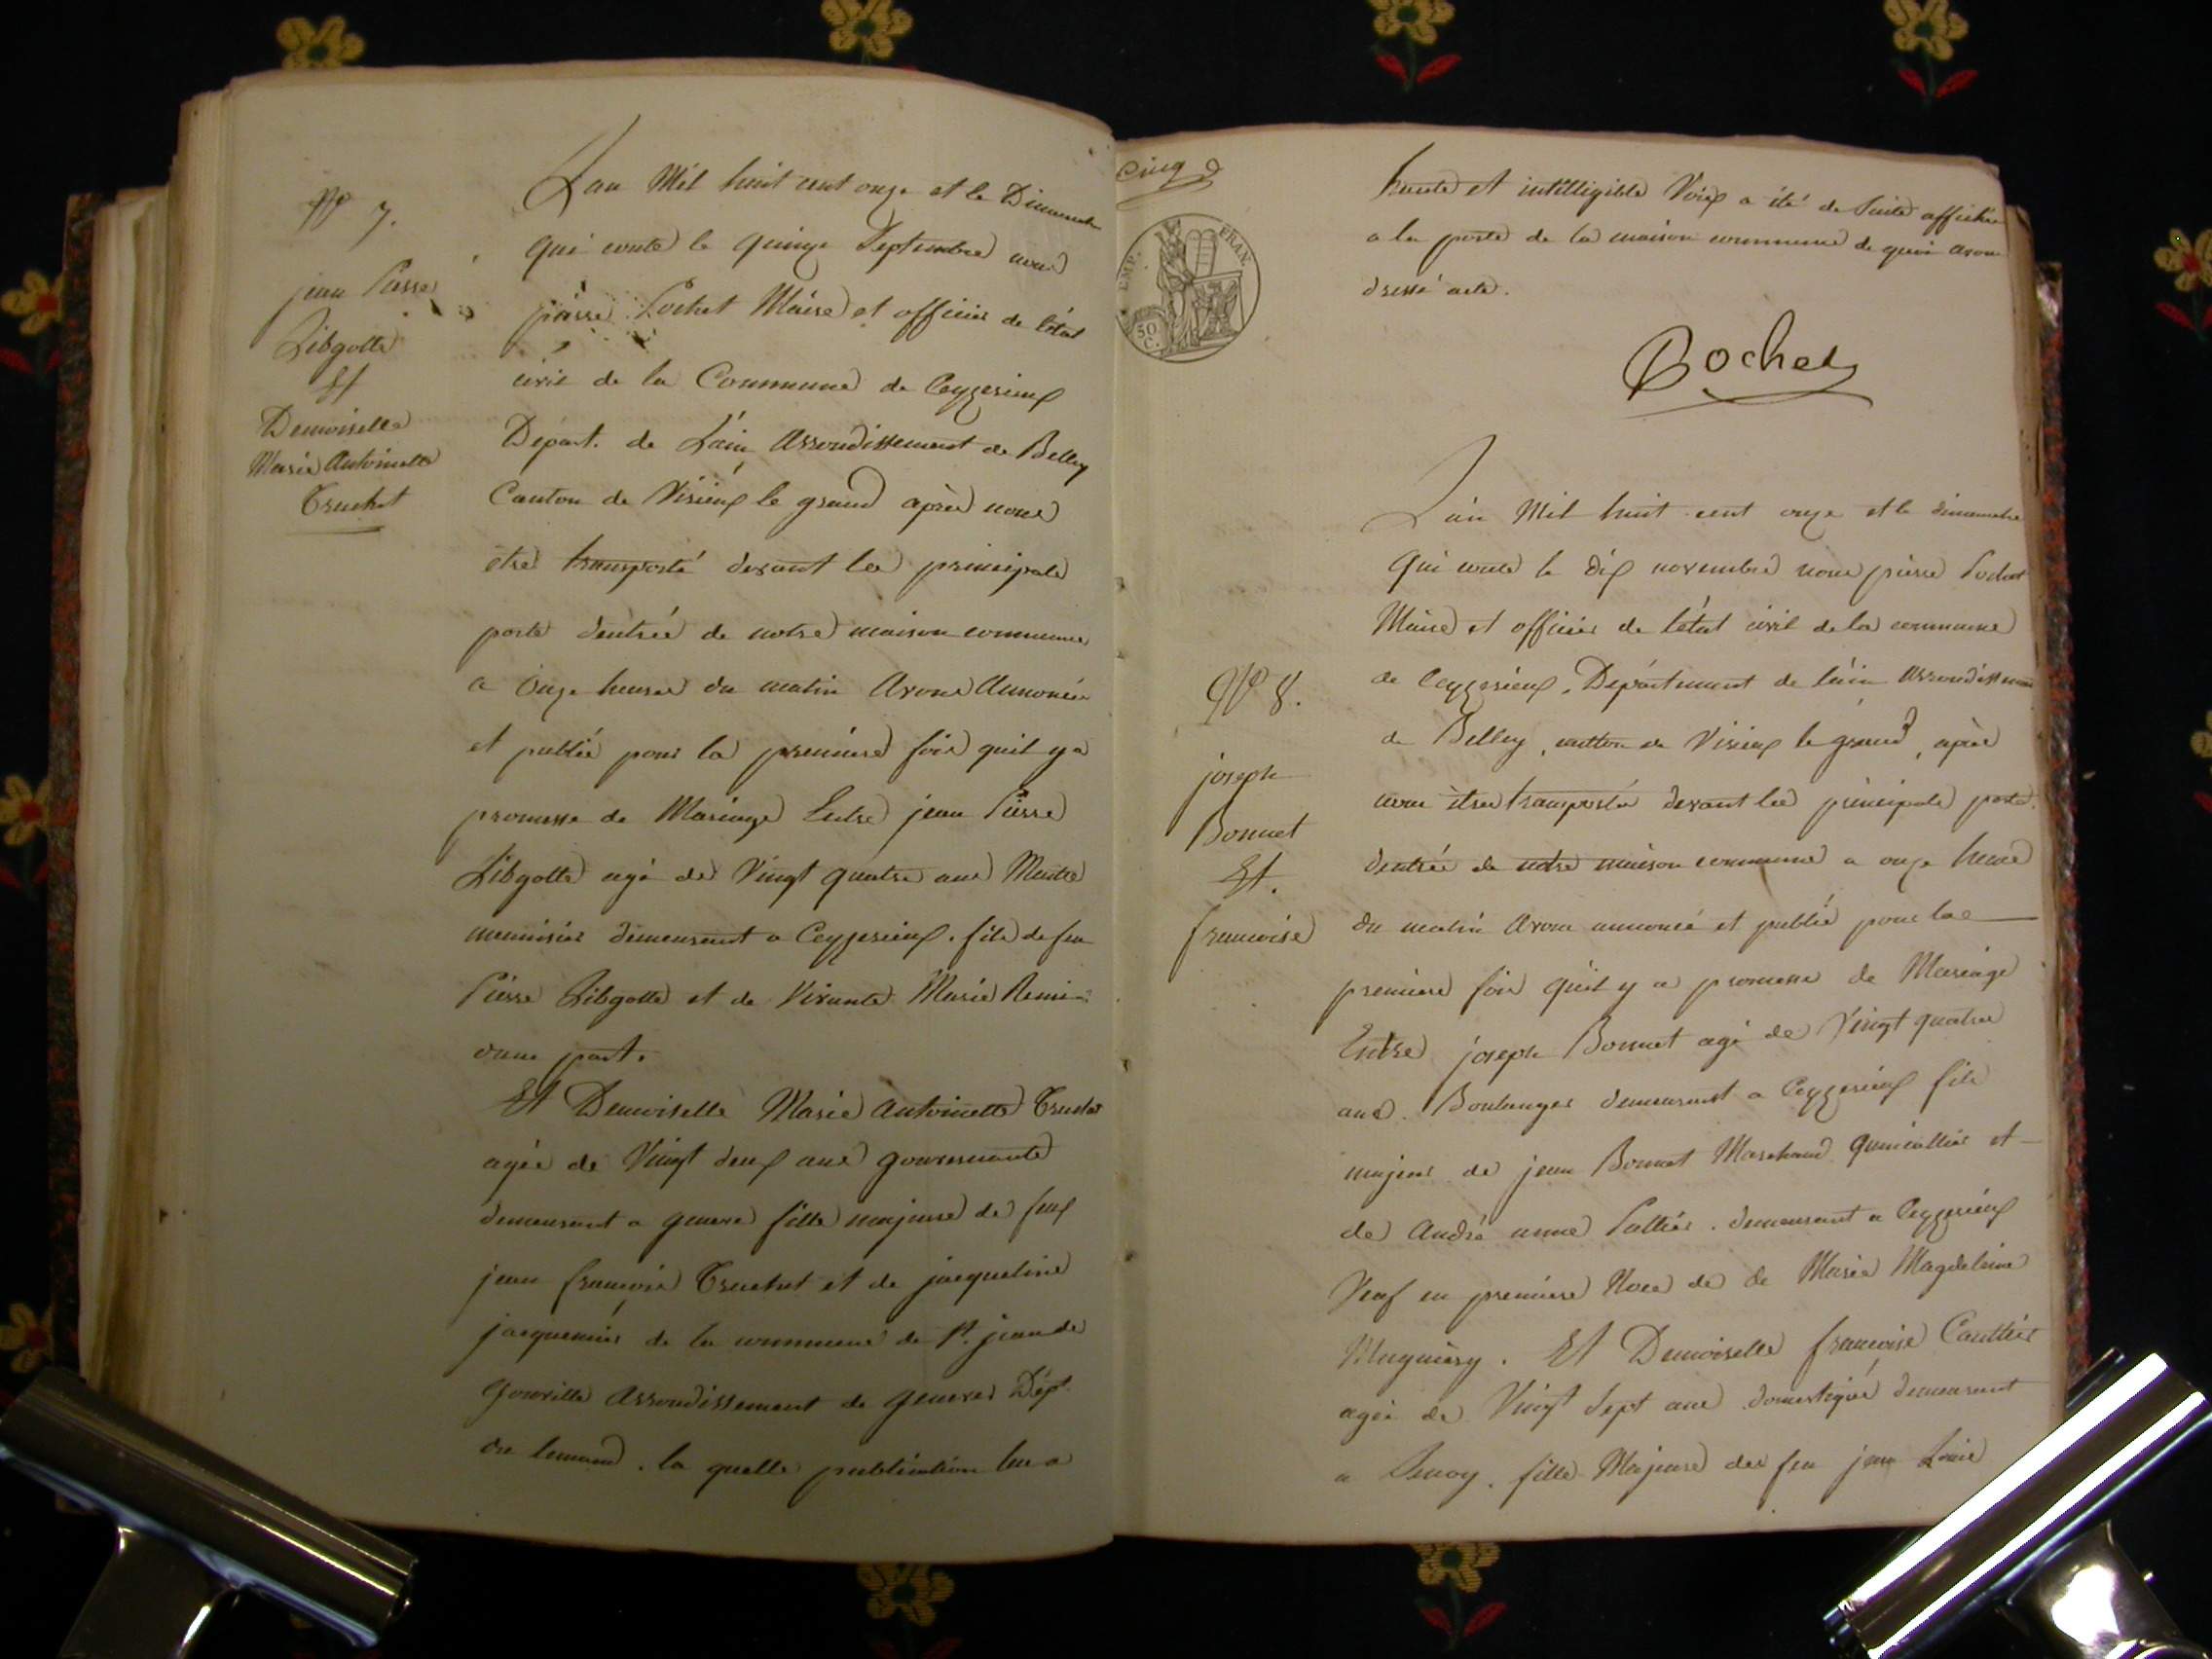 N° 7.
jean Pierre
Libgotte
Et
Demoiselle
Marie Antoinette
Truchet
Lan Mil huit cent onze et le Dimanche
qui conte le quinze Septembre nous
pierre Pochet Maire et officier de létat
civil de la Commune de Ceyzerieux
Départ. de L'ain Arrondissement de Belley
Canton de Virieux le grand après nous
etre transporté devant la principale
porte dentrée de notre maison commune
a onze heures du matin Avons Annoncée
et publiée pour la premiere fois quil y a
promesse de Mariage Entre jean Pierre
Libgotte agé de Vingt quatre ans Maitre
menuisier demeurant a Ceyzerieux. fils de feu
Pierre Libgotte et de Vivante Marie
dune part.
Et Demoiselle Marie Antoinette Truchet
agée de Vingt deux ans gouvernante
demeurant a geneve fille majeure de feux
jean françois Truchet et de jacqueline
jacquemier de la commune de St. jean de
gonville Arrondissement de geneve Dépt.
du leman. la quelle publication lue a
cinq
EMP. FRAN.
50
C.
haute et intilligible Voix a été de suite affichée
a la porte de la maison commune de quoi avons
dressé acte.
Pochet
N° 8.
joseph
Bonnet
Et.
francoise
L'an Mil huit cent onze et le dimanche
qui conte le dix novembre nous pierre Pochet
Maire et officier de l'état civil de la commune
de Ceyzerieux. Département de l'ain Arrondissement
de Belley, cantton de Virieux le grand, après
nous être transportée devant la principale porte
dentrée de notre maison commune a onze heures
du matin Avons annoncé et publié pour la
premiere fois qu'il y a promesse de Mariage
Entre joseph Bonnet agé de Vingt quatre
ans. Boulanger demeurant a Ceyzerieux fils
majeur de jean Bonnet Marchand quincallier et
de André anne demeurant a Ceyzerieux
Veuf en premiere Noce de de Marie Magdeleine
Et Demoiselle francoise
agée de Vingt Sept ans domestique demeurant
a fille Majeure de feu jean Louis